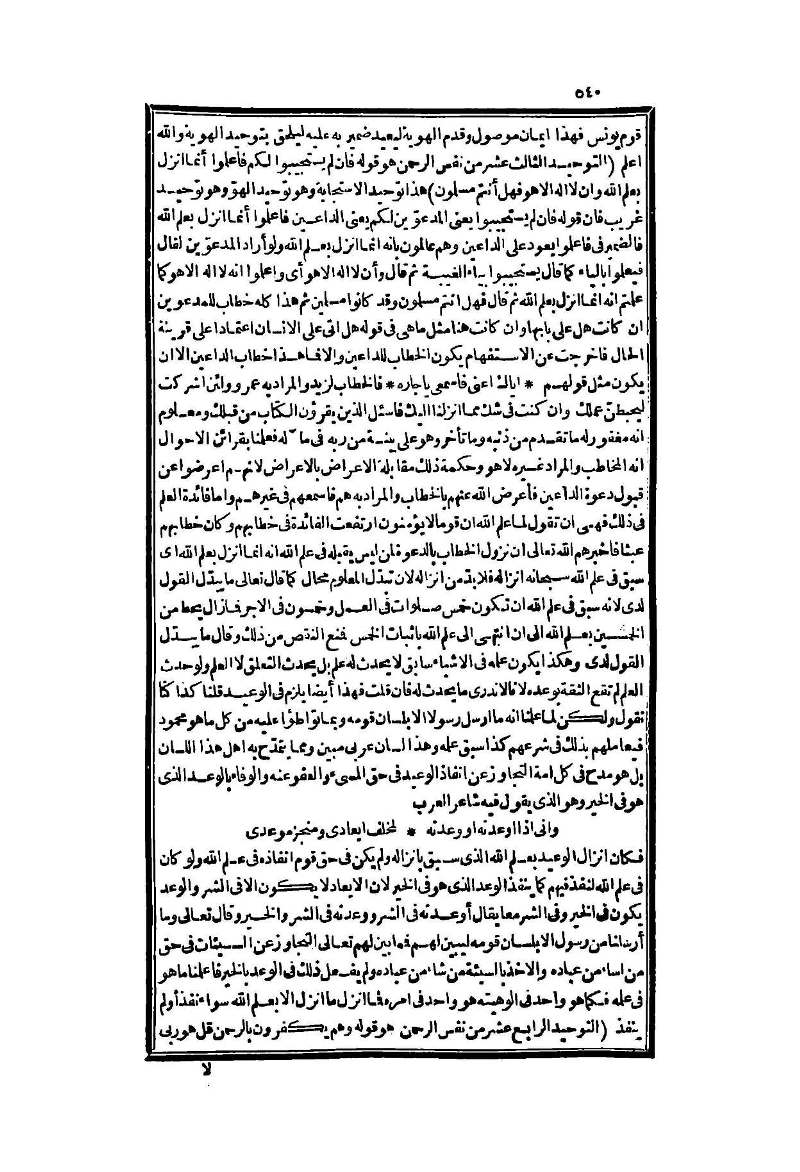 ٥٤٠
قوم يونس فهذا ايمان موصول وقدم الهوية ليعيد ضمير به عليه ليلحق بتوحيد الهوية والله
اعلم (التوحيد الثالث عشر من نفس الرحمن هو قوله فان لم يستجيبوا لكم فاعلوا أنما انزل
بعلم الله وان لا اله الا هو فهل أنتم مسلمون) هذا توحيد الاستجابة وهو توحيد الهو وهو توحيد
غريب فان قوله فان لم يستجيبوا يعنى المدعوّين لكم يعنى الداعين فاعلوا أنما انزل بعلم الله
فالضمير فى فاعلوا يعود على الداعين وهم عالمون بانه انما انزل بعلم الله ولو أراد المدعوّين لقال
فيعلوا بالياء كما قال يستجيبوا بياء الغيبة ثم قال وأن لا اله الا هو أى واعلوا انه لا اله الا هو كما
علتم انه انما انزل بعلم الله ثم قال فهل انتم مسلمون وقد كانوا مسلمين ثم هذا كله خطاب للمدعوين
ان كانت هل على بابها وان كانت هنا مثل ما هى فى قوله هل اتى على الانسان اعتمادا على قرينة
الحال فاخرجت عن الاستفهام يكون الخطاب للداعين والا فما هذا خطاب الداعين الا ان
يكون مثل قولهم * اياك اعنى فاسمعى يا جاره * فالخطاب لزيد والمراد به عمرو ولئن اشركت
ليحبطنّ عملك وان كنت فى شك مما انزلنا اليك فاسئل الذين يقرؤن الكتاب من قبلك ومعلوم
انه مغفور له ما تقدم من ذنبه وما تأخر وهو على بينة من ربه فى ما ٓله فعلنا بقرائن الاحوال
انه المخاطب والمراد غيره لا هو وحكمة ذلك مقابلة الاعراض بالاعراض لانهم اعرضوا عن
قبول دعوة الداعين فأعرض الله عنهم بالخطاب والمراد به هم فاسمعهم فى غيرهم واما فائدة العلم
فى ذلك فهى ان تقول لما علم الله ان قوما لا يؤمنون ارتفعت الفائدة فى خطابهم وكان خطابهم
عبثا فاخبرهم الله تعالى ان نزول الخطاب بالدعوة لمن ليس يقبله فى علم الله انه انما انزل بعلم الله اى
سبق فى علم الله سبحانه انزاله فلا بدّ من انزاله لان تبدّل المعلوم محال كما قال تعالى ما يبدّل القول
لدى لانه سبق فى علم الله ان تكون خمس صلوات فى العمل وخمسون فى الاجر فما زال يحط من
الخمسين بعلم الله الى ان انتهى الى علم الله باثبات الخمس فمنع النقص من ذلك وقال ما يبدّل
القول لدى وهكذا يكون علمه فى الاشياء سابق لا يحدث له علم بل يحدث التعلق لا العلم ولو حدث
العلم لم تقع الثقة بوعده لانا لا ندرى ما يحدث له فان قلت فهذا أيضا يلزم فى الوعيد قلنا كذا كنّا
نقول ولكن لما علمنا انه ما ارسل رسولا الا بلسان قومه وبما تواطؤا عليه من كل ما هو محمود
فيعاملهم بذلك فى شرعهم كذا سبق علمه وهذا لسان عربى مبين ومما يتمدّح به اهل هذا اللسان
بل هو مدح فى كل امة التجاوز عن انفاذ الوعيد فى حق المسىء والعفو عنه والوفاء بالوعد الذى
هو فى الخير وهو الذى يقول فيه شاعر العرب
وانى اذا اوعدته او وعدته * لمخلف ايعادى ومنجز موعدى
فكان انزال الوعيد بعلم الله الذى سبق بانزاله ولم يكن فى حق قوم انفاذه فى علم الله ولو كان
فى علم الله لنفذ فيهم كما ينفذ الوعد الذى هو فى الخير لان الايعاد لا يكون الا فى الشر والوعد
يكون فى الخير وفى الشر معا يقال أوعدته فى الشر ووعدته فى الشر والخير وقال تعالى وما
أرسلنا من رسول الا بلسان قومه ليبين لهم فما بين لهم تعالى التجاوز عن السيئات فى حق
من اساء من عباده والاخذ بالسيئة من شاء من عباده ولم يفعل ذلك فى الوعد بالخير فاعلمنا ما هو
فى علمه فكما هو واحد فى الوهيته هو واحد فى امره فما انزل ما انزل الا بعلم الله سواء نفذ أو لم
ينفذ (التوحيد الرابع عشر من نفس الرحمن هو قوله وهم يكفرون بالرحمن قل هو ربى
لا